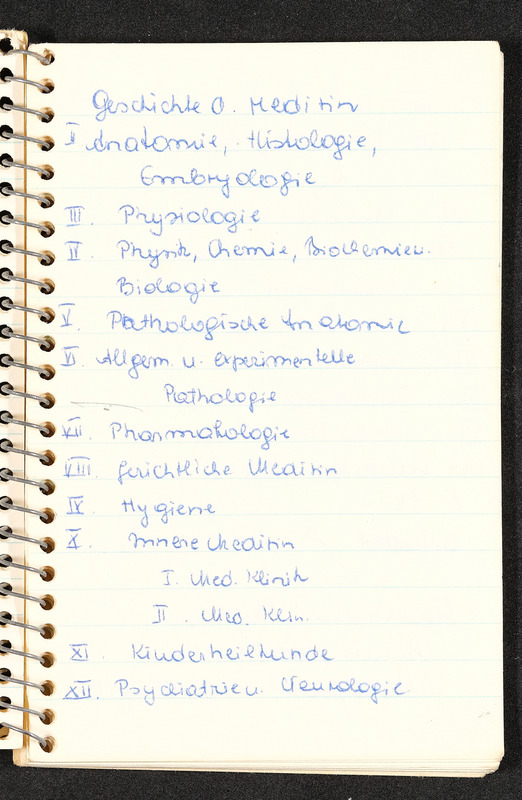 Geschichte d. Medizin
II Anatomie, Histologie,
Embryologie
III. Physiologie
IV. Physik, Chemie, Biochemie u.
Biologie
V. Pathologische Anatomie
VI. Allgem. u. experimentelle
Pathologie
VII. Pharmakologie
VIII. gerichtliche Medizin
IX. Hygiene
X. Innere Medizin
I. Med. Klinik
II. Med. Klin.
XI. Kinderheilkunde
XII. Psychiatrie u. Neurologie